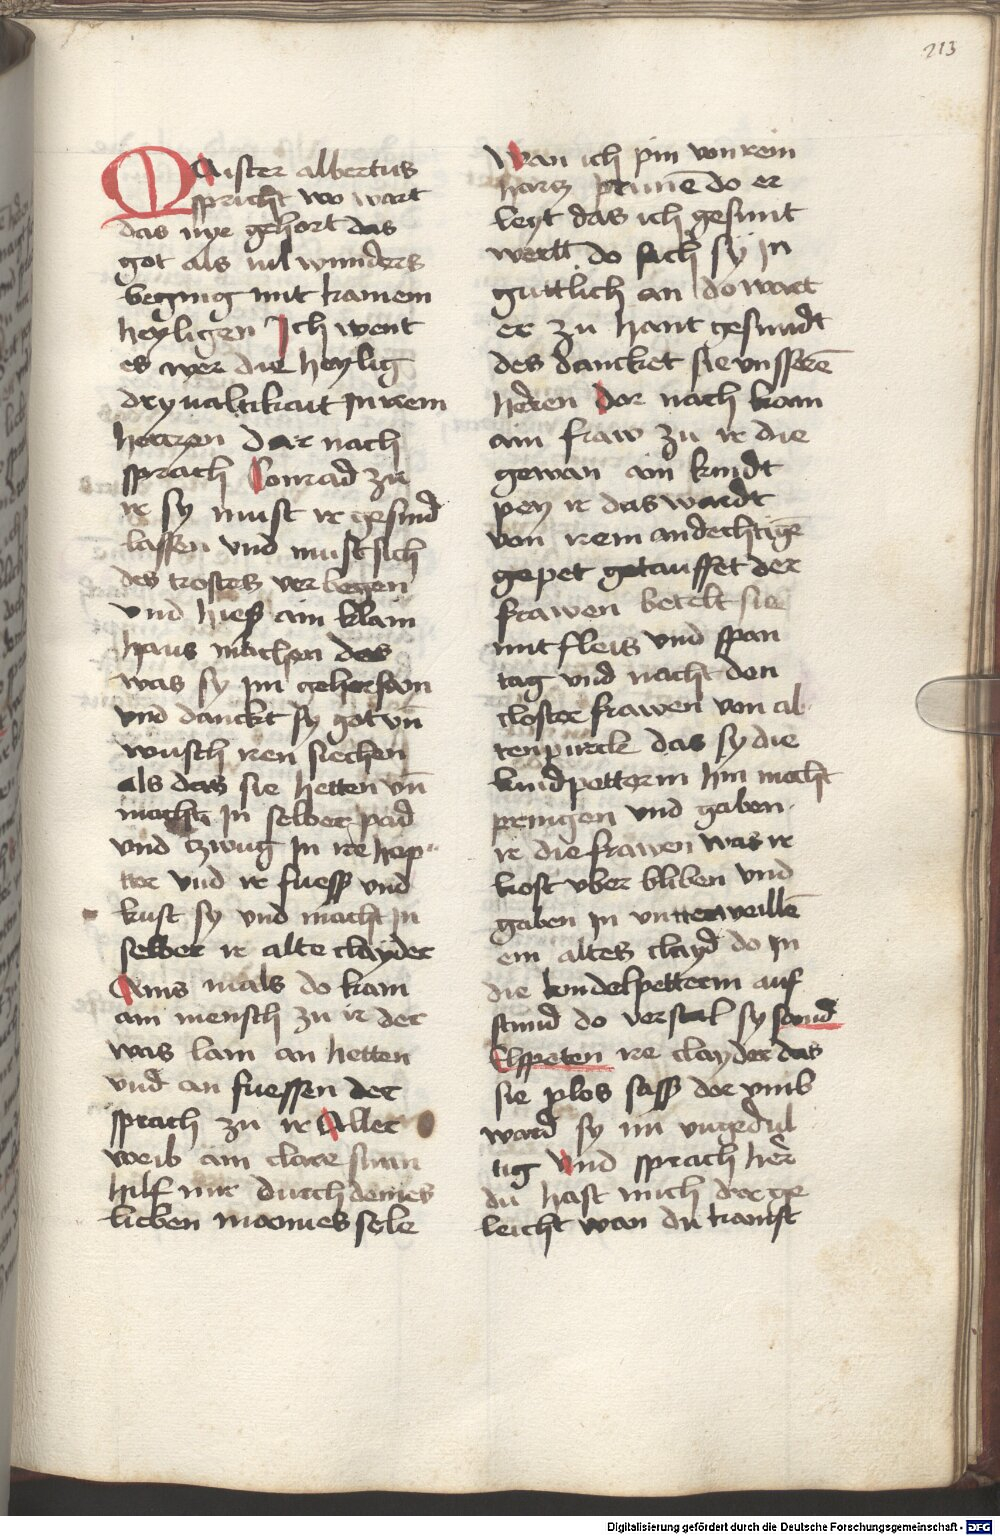 213
MAister albertus
spricht wo wart
das nye gehort das
got als uil wunders
beging mit kainem
heyligen Ich went
es wer die heylig
dryualtikait In irem
hertzen dar nach
sprach Conrad zu
ir sy must ir gesind
lassen vnd must sich
des trostes verbegen
vnd hies ain klain
haus machen des
was sy im gehorsam
vnd danckt sy got vn̄
wusch iren siechen
als das sie hetten vn̄
macht In selber pad
vnd tzwug In ire hep
ter vnd ir fuess vnd
kust sy vnd macht In
selber ir alte clayder
Ains mals do kam
ain mensch zu ir der
was lam an hetten
vnd an fuessen der
sprach zu ir Aller
weib ain clare sunn
hilf mir durch deines
lieben mannes sele
Wan ich pin von rein
hartz do er
leyt das ich gesunt
werd do sach sy In
guttlich an do wart
er zu hant gesundt
des dancket sie vnsserē
heren Dor nach kam
ain fraw zu ir die
gewan ain kindt
pey ir das wardt
von irem andechtigē
gepet getauffet der
frawen betelt sie
mit fleis vnd span
tag vnd nacht den
closter frawen von al
tenpurck das sy die
kindpetterin hin mocht
pringen vnd gaben
ir die frawen was ir
kost vber bliben vnd
gaben In vntterweillē
ein altes clayd do In
die kindelpetterin auf
stund do verstal sy sand
Elspeten ire clayder das
sie plos sass dor vmb
ward sy nit vngedul
tig Vnd sprach her
du hast mich dir ge
leicht wan du kamst
Digitalisierung gefördert durch die Deutsche Forschungsgemeinschaft - DFG